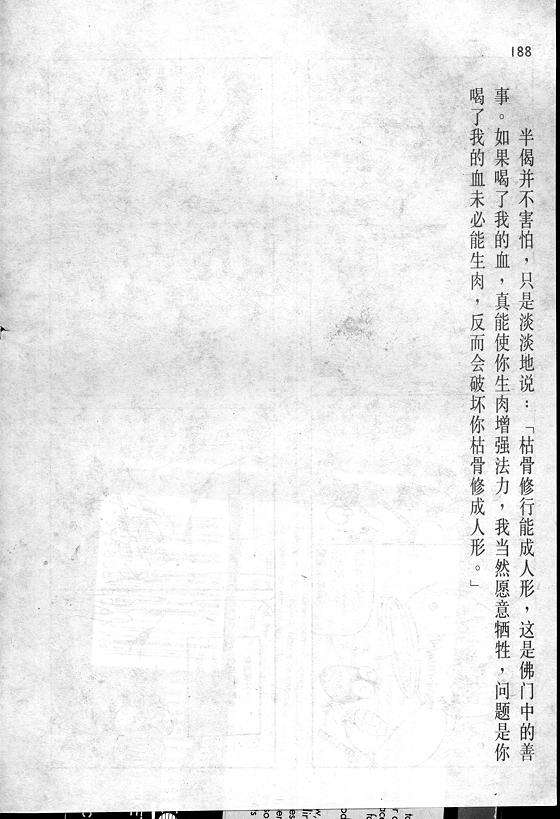 188
半偈并不害怕，只是淡淡地说：「枯骨修行能成人形，这是佛门中的善
事。如果喝了我的血，真能使你生肉增强法力，我当然愿意牺牲，问题是你
喝了我的血未必能生肉，反而会破坏你枯骨修成人形。」